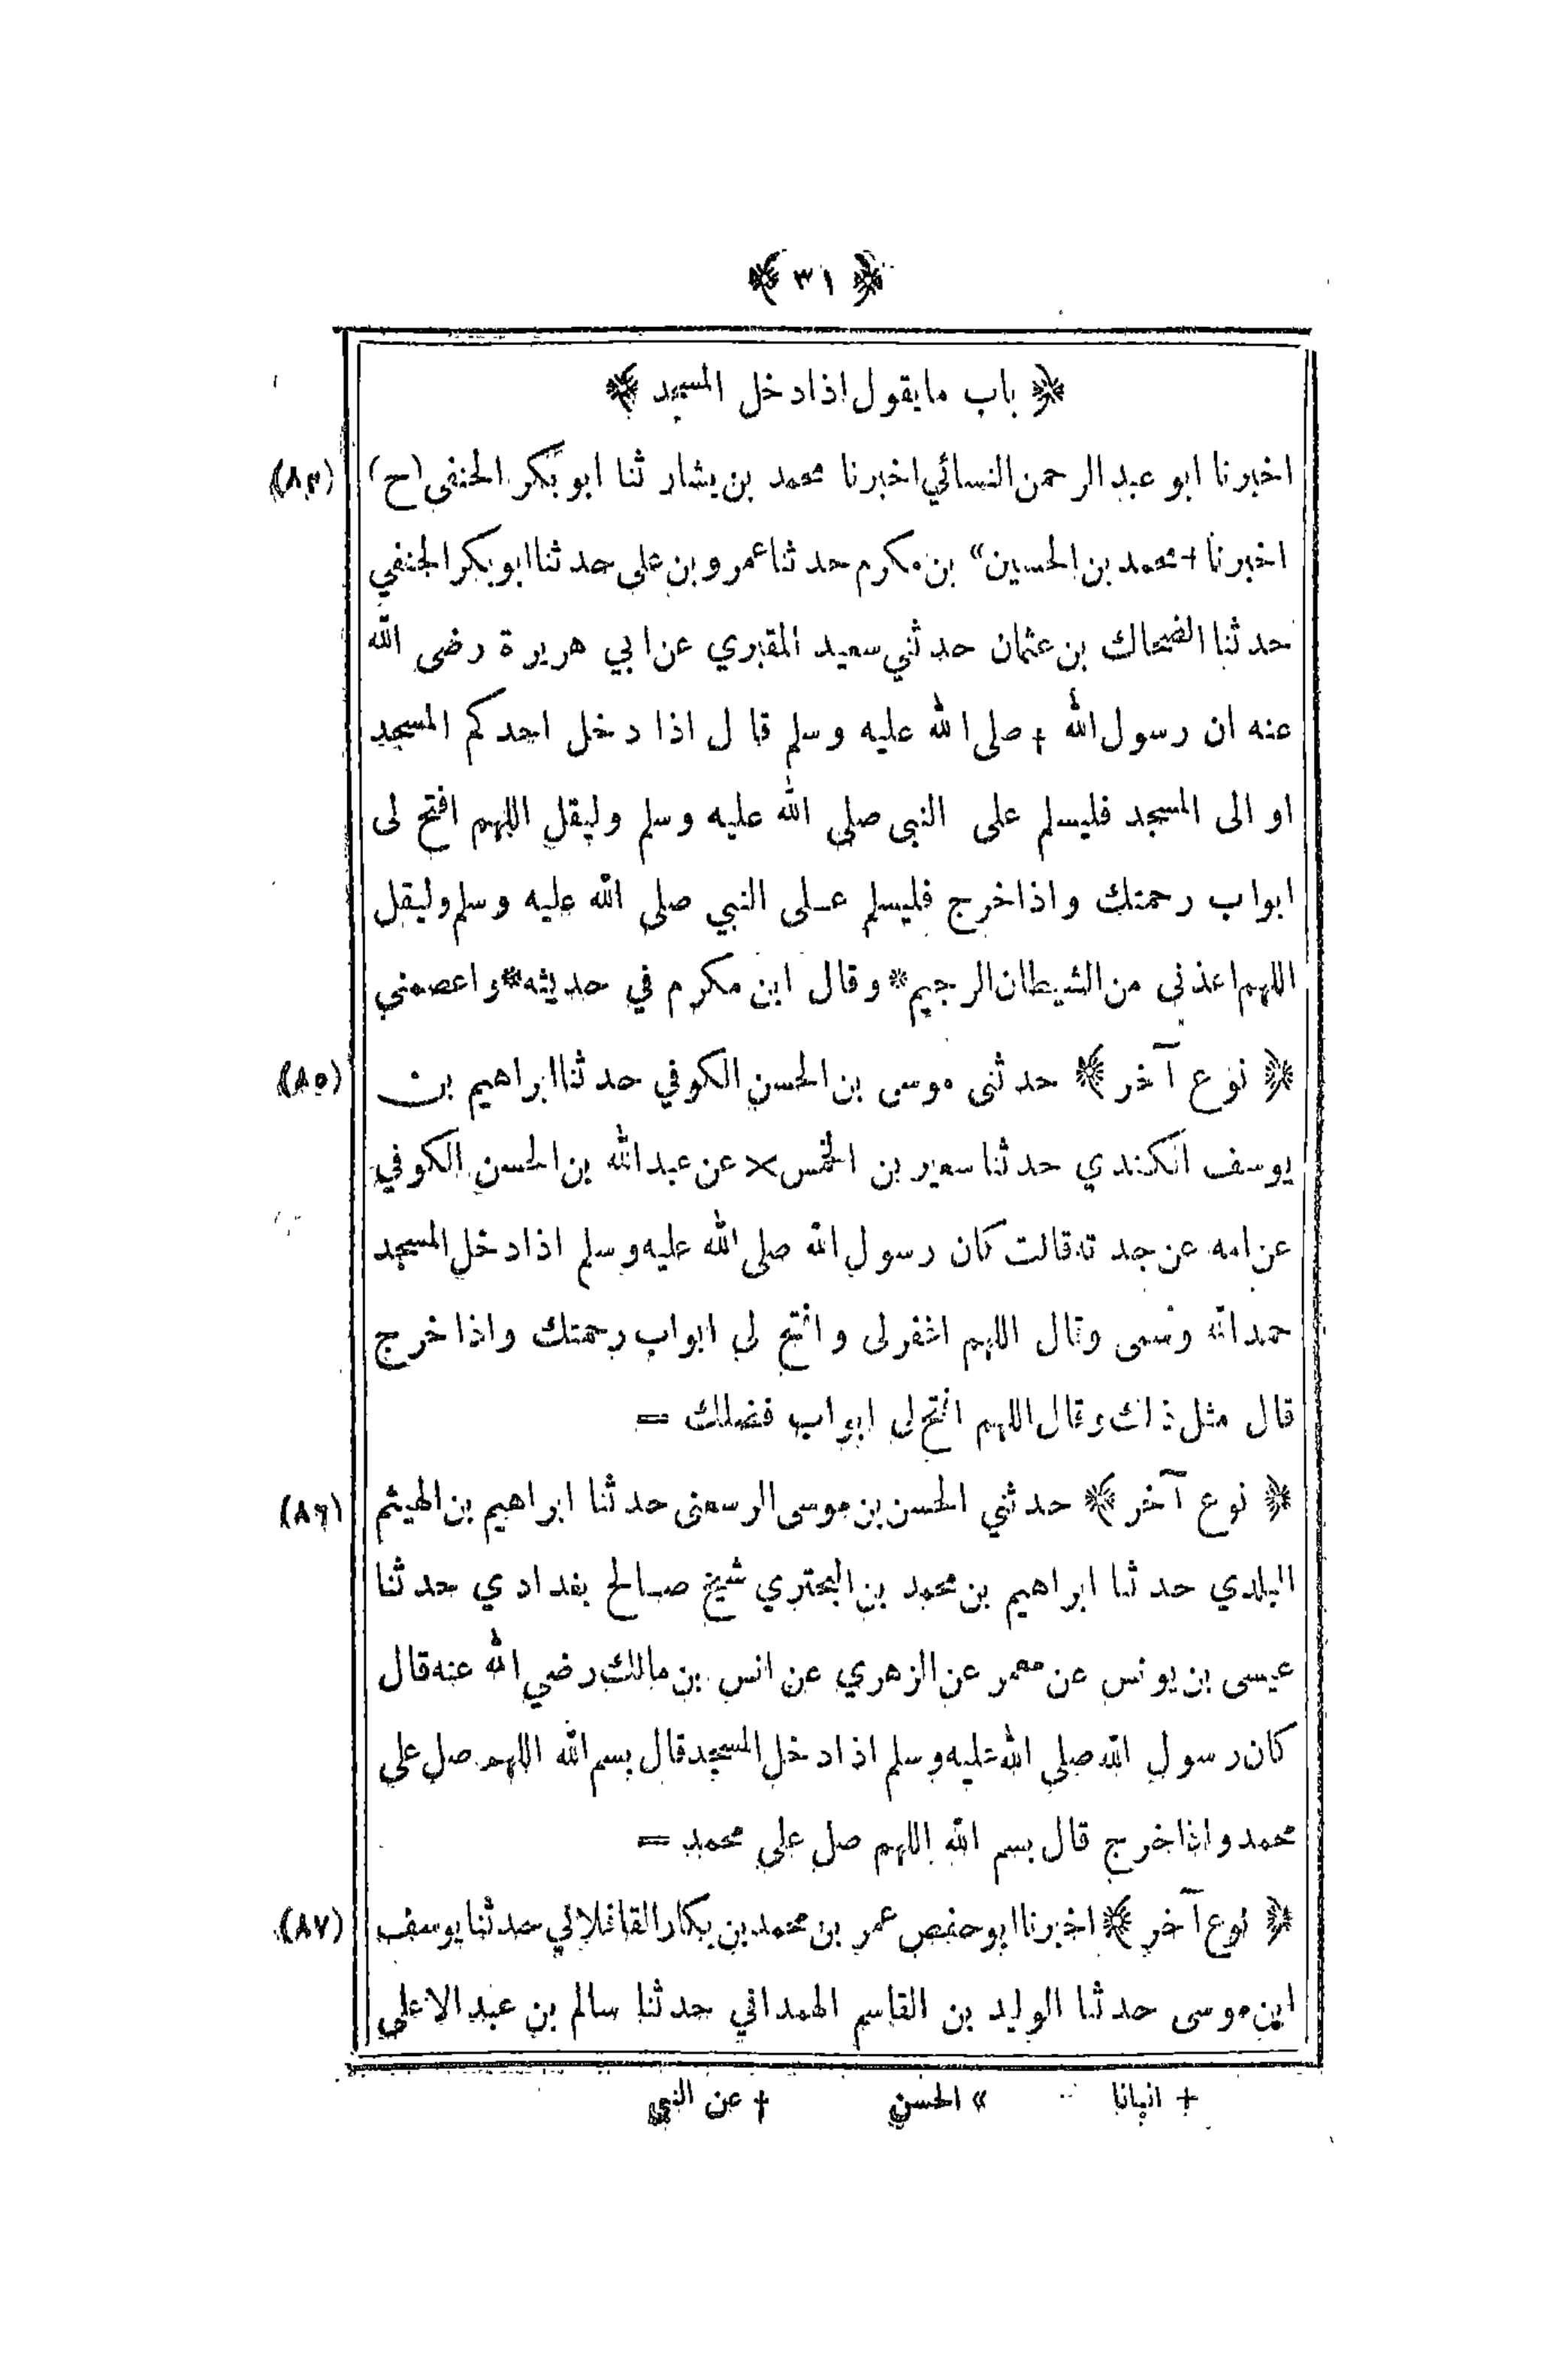 ﴿ ٣١ ﴾
﴿ باب ما يقول اذا دخل المسجد ﴾
اخبرنا ابو عبد الرحمن النسائي اخبرنا محمد بن بشار ثنا ابو بكر الحنفي (ح) (٨٤)
اخبرنا + محمد بن الحسين « بن مكرم حدثنا عمرو بن على حدثنا ابو بكر الحنفي
حدثنا الضحاك بن عثمان حدثني سعيد المقبري عن ابي هريرة رضى الله
عنه ان رسول الله † صلى الله عليه وسلم قال اذا دخل احدكم المسجد
او الى المسجد فليسلم على النبي صلى الله عليه وسلم وليقل اللهم افتح لى
ابواب رحمتك واذا خرج فليسلم عـلى النبي صلى الله عليه وسلم وليقل
اللهم اعذنى من الشيطان الرجيم * وقال ابن مكرم في حديثه * واعصمني
﴿ نوع آخر ﴾ حدثنى موسى بن الحسن الكوفي حدثنا ابراهيم بن (٨٥)
يوسف الكندي حدثنا سعير بن الخمس × عن عبد الله بن الحسن الكوفي
عن امه عن جدته قالت كان رسول الله صلى الله عليه وسلم اذا دخل المسجد
حمد الله وسمى وقال اللهم اغفر لى وافتح لي ابواب رحمتك واذا خرج
قال مثل ذلك وقال اللهم افتح لى ابواب فضلك =
﴿ نوع آخر ﴾ حدثني الحسن بن موسى الرسعنى حدثنا ابراهيم بن الهيثم (٨٦)
البلدي حدثنا ابراهيم بن محمد بن البحتري شيخ صالح بغدادي حدثنا
عيسى بن يونس عن معمر عن الزهري عن انس بن مالك رضي الله عنه قال
كان رسول الله صلى الله عليه وسلم اذا دخل المسجد قال بسم الله اللهم صل على
محمد واذا خرج قال بسم الله اللهم صل على محمد =
﴿ نوع آخر ﴾ اخبرنا ابو حفص عمر بن محمد بن بكار القافلالي حدثنا يوسف (٨٧)
ابن موسى حدثنا الوليد بن القاسم الهمداني حدثنا سالم بن عبد الاعلى
+ انبانا » الحسن † عن النبي